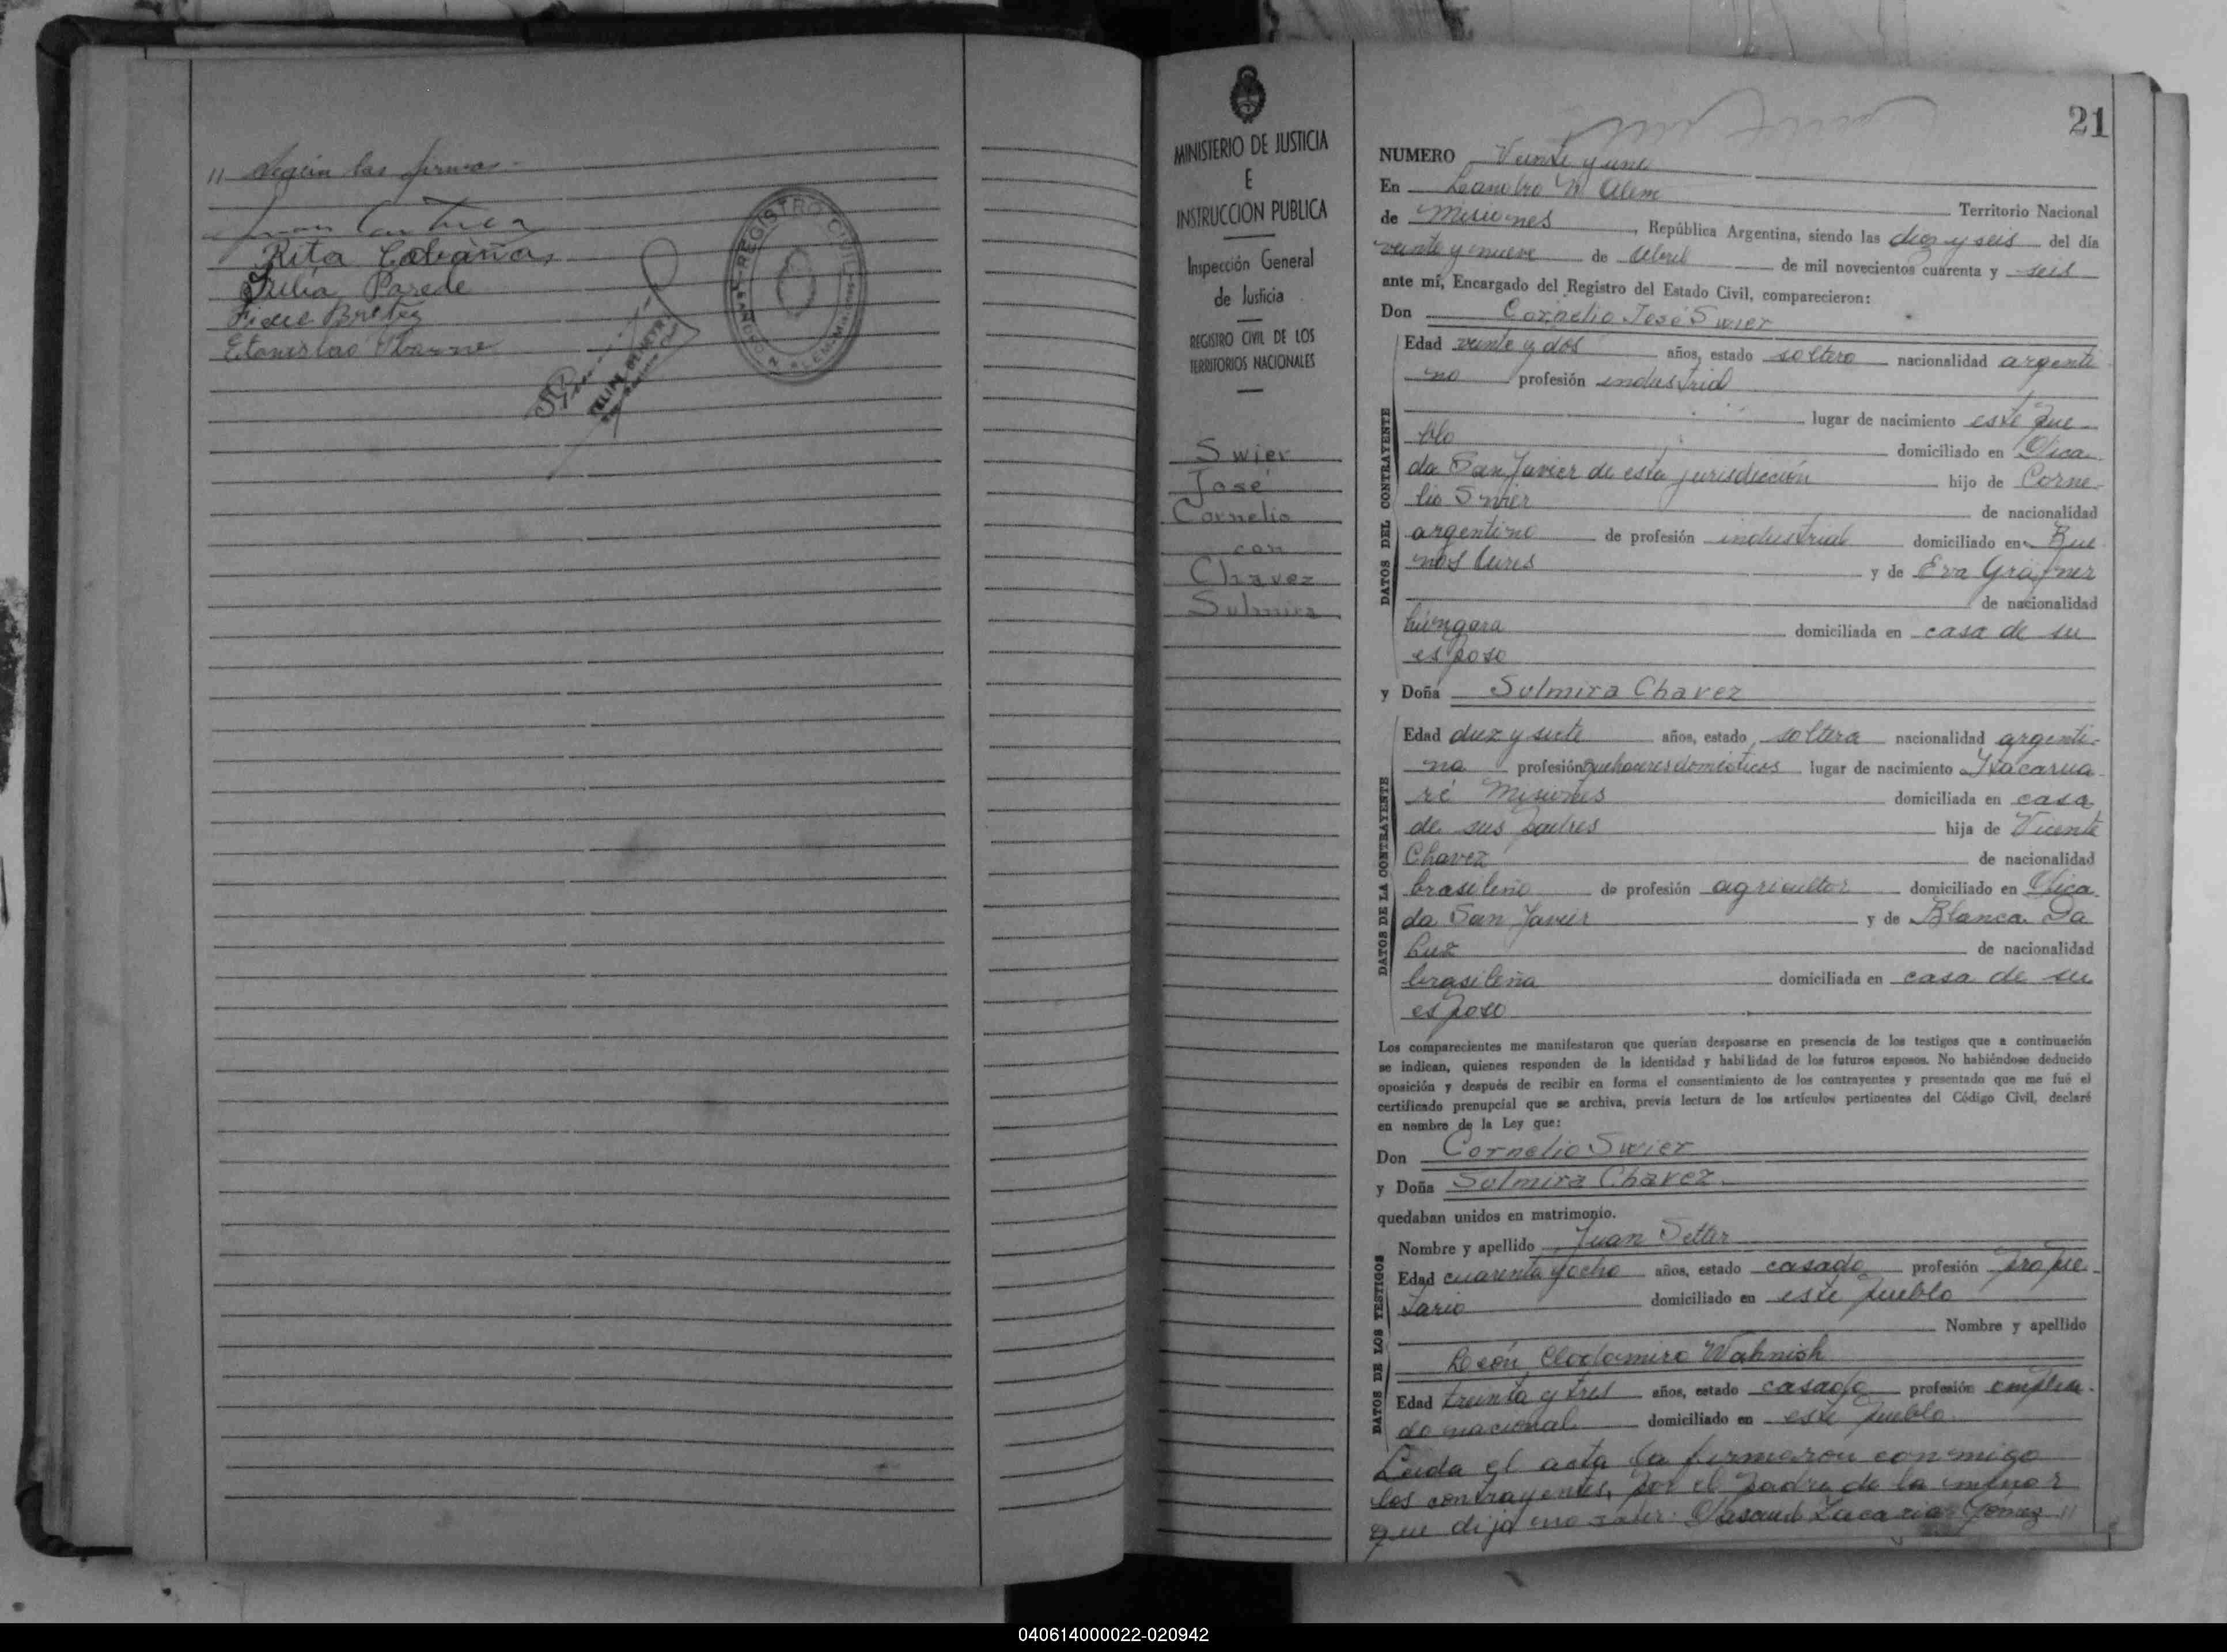 " siguen las firmas.-
Rita Cabañas
Julia Parede
Fidel Britez
Etanislao
REGISTRO CIVIL
LEANDRO N. ALEM. Misiones
FELIPE BENEYTE
MINISTERIO DE JUSTICIA
E
INSTRUCCION PUBLICA
Inspección General
de Justicia
REGISTRO CIVIL DE LOS
TERRITORIOS NACIONALES
Swier
José
Cornelio
con
Chavez
Sulmira
21
NUMERO Veinte y uno
En Leandro N. Alem Territorio Nacional
de Misiones, República Argentina, siendo las diez y seis del día
veinte y nueve de Abril de mil novecientos cuarenta y seis
ante mí, Encargado del Registro del Estado Civil, comparecieron:
Don Cornelio José Swier
DATOS DEL CONTRAYENTE
Edad veinte y dos años, estado soltero nacionalidad argenti
no profesión industrial
lugar de nacimiento este pue
blo domiciliado en Pica
da San Javier de esta jurisdicción hijo de Corne-
lio Swier de nacionalidad
argentino de profesión industrial domiciliado en Bue
nos Aires y de Eva Grafner
de nacionalidad
húngara domiciliada en casa de su
esposo
y Doña Sulmira Chavez
DATOS DE LA CONTRAYENTE
Edad diez y siete años, estado soltera nacionalidad argenti-
na profesión quehaceres domésticos lugar de nacimiento Itacarua
ré Misiones domiciliada en casa
de sus padres hija de Vicente
Chavez de nacionalidad
brasileño de profesión agricultor domiciliado en Pica
da San Javier y de Blanca Da
Luz de nacionalidad
brasileña domiciliada en casa de su
esposo
Los comparecientes me manifestaron que querían desposarse en presencia de los testigos que a continuación
se indican, quienes responden de la identidad y habilidad de los futuros esposos. No habiéndose deducido
oposición y después de recibir en forma el consentimiento de los contrayentes y presentado que me fué el
certificado prenupcial que se archiva, previa lectura de los artículos pertinentes del Código Civil, declaré
en nombre de la Ley que:
Don Cornelio Swier
y Doña Sulmira Chavez.
quedaban unidos en matrimonio.
DATOS DE LOS TESTIGOS
Nombre y apellido Juan Setter
Edad cuarenta y ocho años, estado casado profesión propie-
tario domiciliado en este pueblo
Nombre y apellido
León Clodomiro Wahnish
Edad treinta y tres años, estado casado profesión emplea-
do nacional. domiciliado en este pueblo.
Leida el acta la firmaron conmigo
los contrayentes, por el padre de la menor
que dijo no saber: Pascual Zacarias Gomez "
040614000022-020942